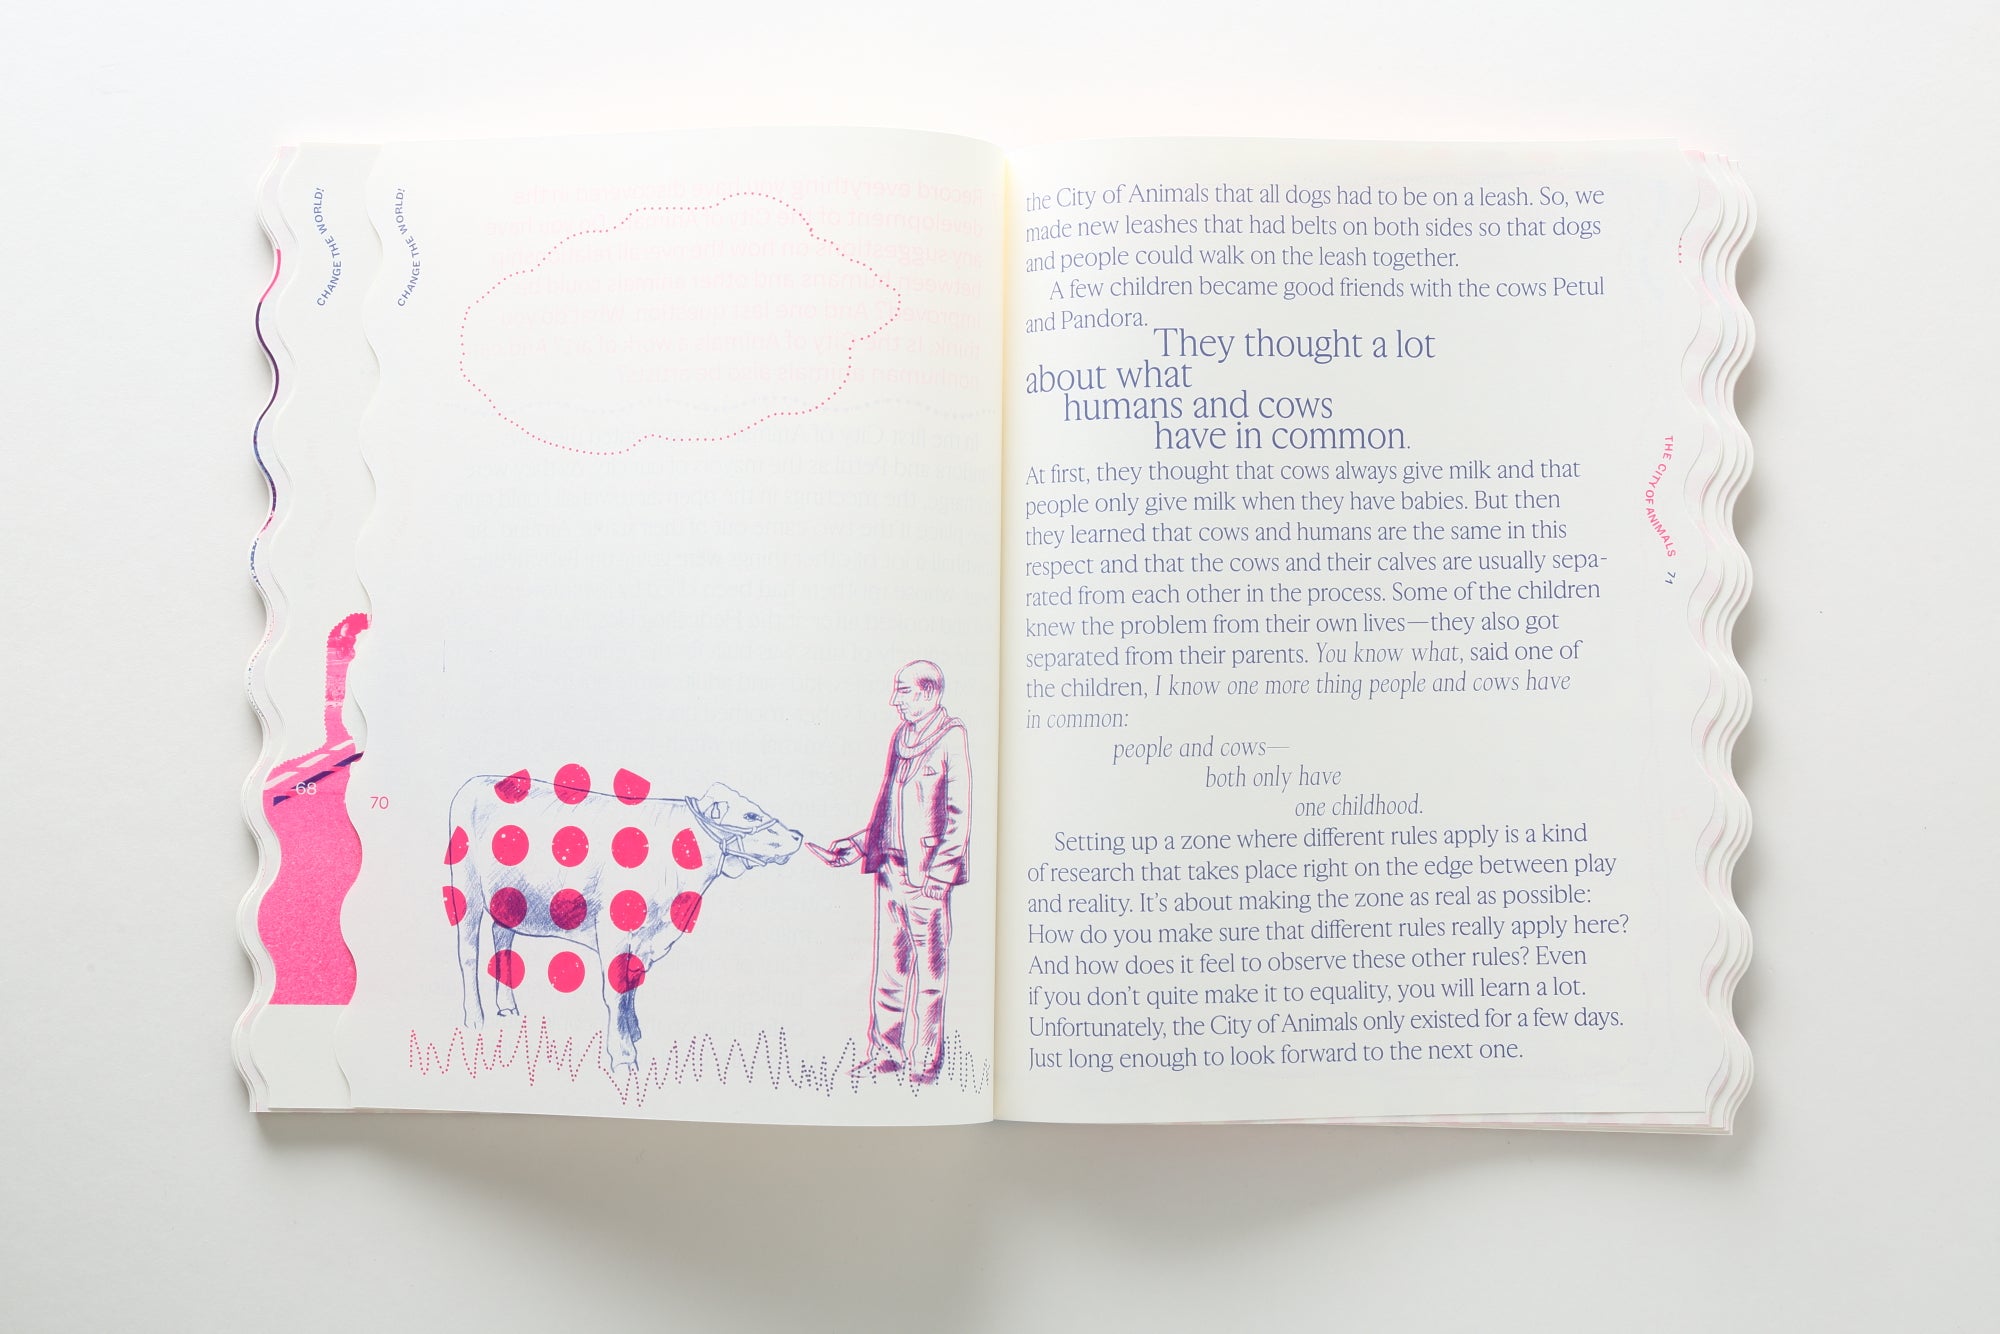 CHANGE THE WORLD!
CHANGE THE WORLD!
68
70
the City of Animals that all dogs had to be on a leash. So, we
made new leashes that had belts on both sides so that dogs
and people could walk on the leash together.
A few children became good friends with the cows Petul
and Pandora.
They thought a lot
about what
humans and cows
have in common.
At first, they thought that cows always give milk and that
people only give milk when they have babies. But then
they learned that cows and humans are the same in this
respect and that the cows and their calves are usually sepa-
rated from each other in the process. Some of the children
knew the problem from their own lives—they also got
separated from their parents. You know what, said one of
the children, I know one more thing people and cows have
in common:
people and cows—
both only have
one childhood.
Setting up a zone where different rules apply is a kind
of research that takes place right on the edge between play
and reality. It’s about making the zone as real as possible:
How do you make sure that different rules really apply here?
And how does it feel to observe these other rules? Even
if you don’t quite make it to equality, you will learn a lot.
Unfortunately, the City of Animals only existed for a few days.
Just long enough to look forward to the next one.
THE CITY OF ANIMALS 71